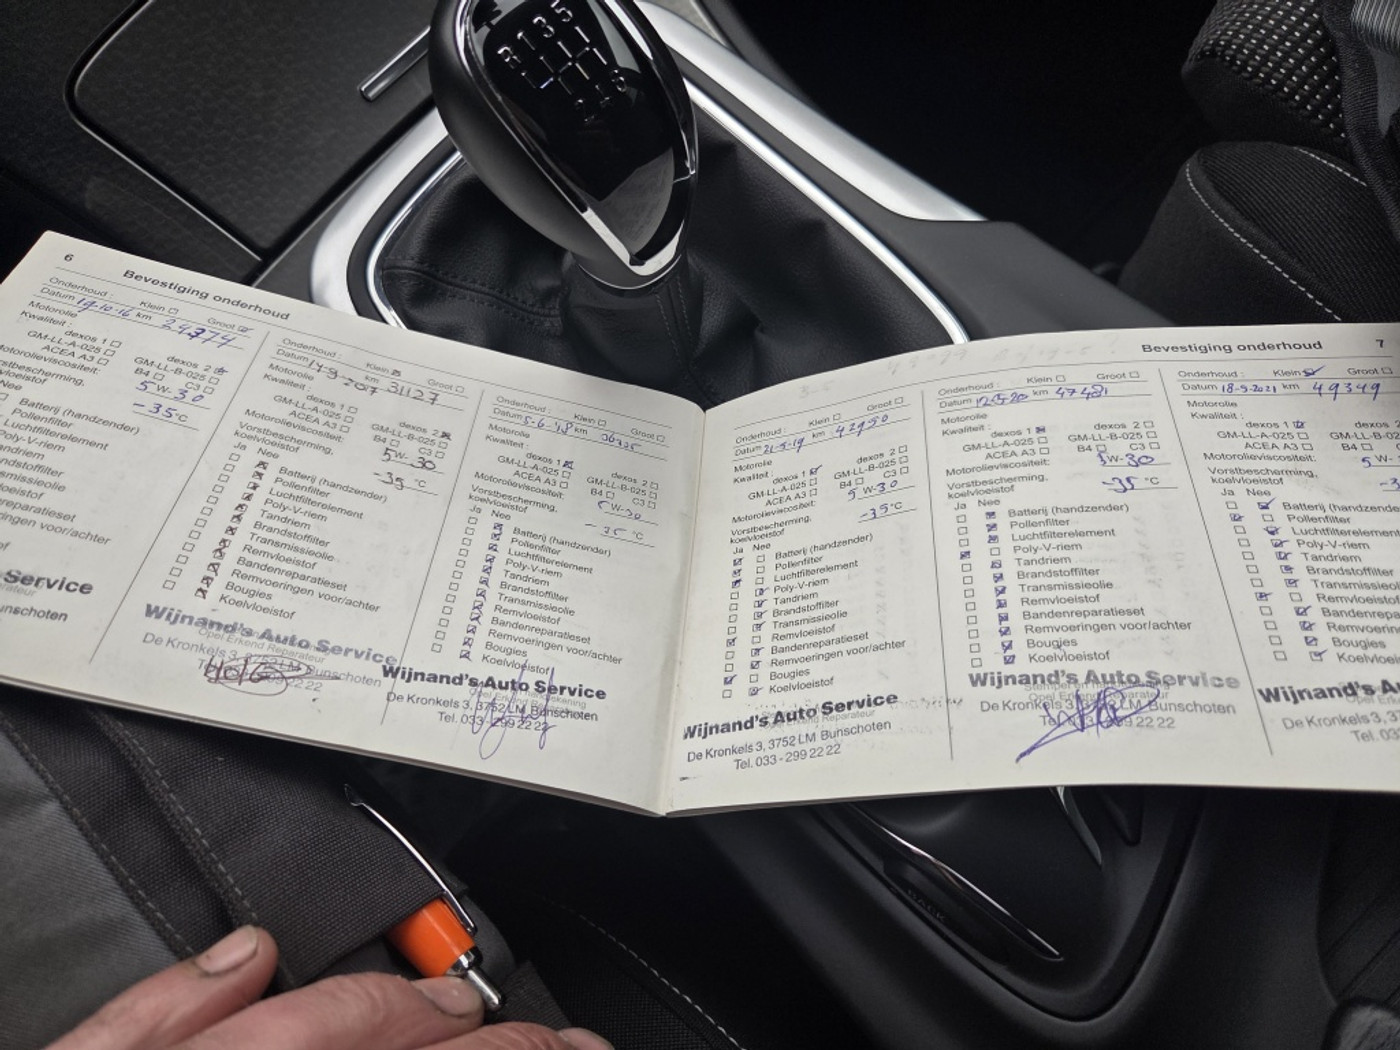 R 1 3 5
2 4 6
6
Bevestiging onderhoud
Onderhoud : Klein Groot
Datum 19-10-16 km 24774
Motorolie
Kwaliteit :
dexos 1 dexos 2
GM-LL-A-025 GM-LL-B-025
ACEA A3 B4 C3
Motorolieviscositeit: 5W-30
-35°C
Nee
Batterij (handzender)
Pollenfilter
Luchtfilterelement
Poly-V-riem
Service
Bunschoten
Onderhoud : Klein Groot
Datum 14-9-2017 km 31127
Motorolie
Kwaliteit :
dexos 1 dexos 2
GM-LL-A-025 GM-LL-B-025
ACEA A3 B4 C3
Motorolieviscositeit: 5W-30
Vorstbescherming,
koelvloeistof -35 °C
Ja Nee
Batterij (handzender)
Pollenfilter
Luchtfilterelement
Poly-V-riem
Tandriem
Brandstoffilter
Transmissieolie
Remvloeistof
Bandenreparatieset
Remvoeringen voor/achter
Bougies
Koelvloeistof
Wijnand's Auto Service
Opel Erkend Reparateur
De Kronkels 3, 3752 LM Bunschoten
Onderhoud : Klein Groot
Datum 5-6-'18 km 36325
Motorolie
Kwaliteit :
dexos 1 dexos 2
GM-LL-A-025 GM-LL-B-025
ACEA A3 B4 C3
Motorolieviscositeit: 5W-30
Vorstbescherming,
koelvloeistof -35 °C
Ja Nee
Batterij (handzender)
Pollenfilter
Luchtfilterelement
Poly-V-riem
Tandriem
Brandstoffilter
Transmissieolie
Remvloeistof
Bandenreparatieset
Remvoeringen voor/achter
Bougies
Koelvloeistof
Wijnand's Auto Service
Opel Erkend Reparateur
De Kronkels 3, 3752 LM Bunschoten
Tel. 033-299 22 22
Bevestiging onderhoud
7
Onderhoud : Klein Groot
Datum 21-5-19 km 42950
Motorolie
Kwaliteit : dexos 1 dexos 2
GM-LL-A-025 GM-LL-B-025
ACEA A3 B4 C3
Motorolieviscositeit: 5W-30
Vorstbescherming,
koelvloeistof -35°C
Ja Nee
Batterij (handzender)
Pollenfilter
Luchtfilterelement
Poly-V-riem
Tandriem
Brandstoffilter
Transmissieolie
Remvloeistof
Bandenreparatieset
Remvoeringen voor/achter
Bougies
Koelvloeistof
Wijnand's Auto Service
Opel Erkend Reparateur
De Kronkels 3, 3752 LM Bunschoten
Tel. 033-299 22 22
Onderhoud : Klein Groot
Datum km
Motorolie
Kwaliteit : dexos 1 dexos 2
GM-LL-A-025 GM-LL-B-025
ACEA A3 B4 C3
Motorolieviscositeit: 5W-30
Vorstbescherming,
koelvloeistof -35 °C
Ja Nee
Batterij (handzender)
Pollenfilter
Luchtfilterelement
Poly-V-riem
Tandriem
Brandstoffilter
Transmissieolie
Remvloeistof
Bandenreparatieset
Remvoeringen voor/achter
Bougies
Koelvloeistof
Wijnand's Auto Service
De Kronkels 3, 3752 LM Bunschoten
Onderhoud : Klein Groot
Datum 18-9-2021 km 49349
Motorolie
Kwaliteit :
dexos 1 dexos 2
GM-LL-A-025 GM-LL-B-025
ACEA A3 B4 C3
Motorolieviscositeit: 5W
Vorstbescherming,
koelvloeistof
Ja Nee
Batterij (handzende
Pollenfilter
Luchtfilterelement
Poly-V-riem
Tandriem
Brandstoffilter
Transmissieolie
Remvloeistof
Bandenrepara
Remvoerin
Bougies
Koelvloeis
Wijnand's Au
De Kronkels 3,
Tel. 03